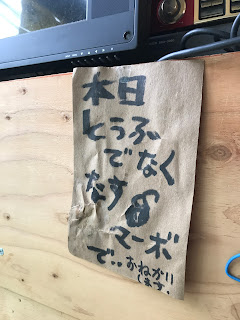 本日
とうふ
でなく
なす
マーボ
で‥おねがい
します。